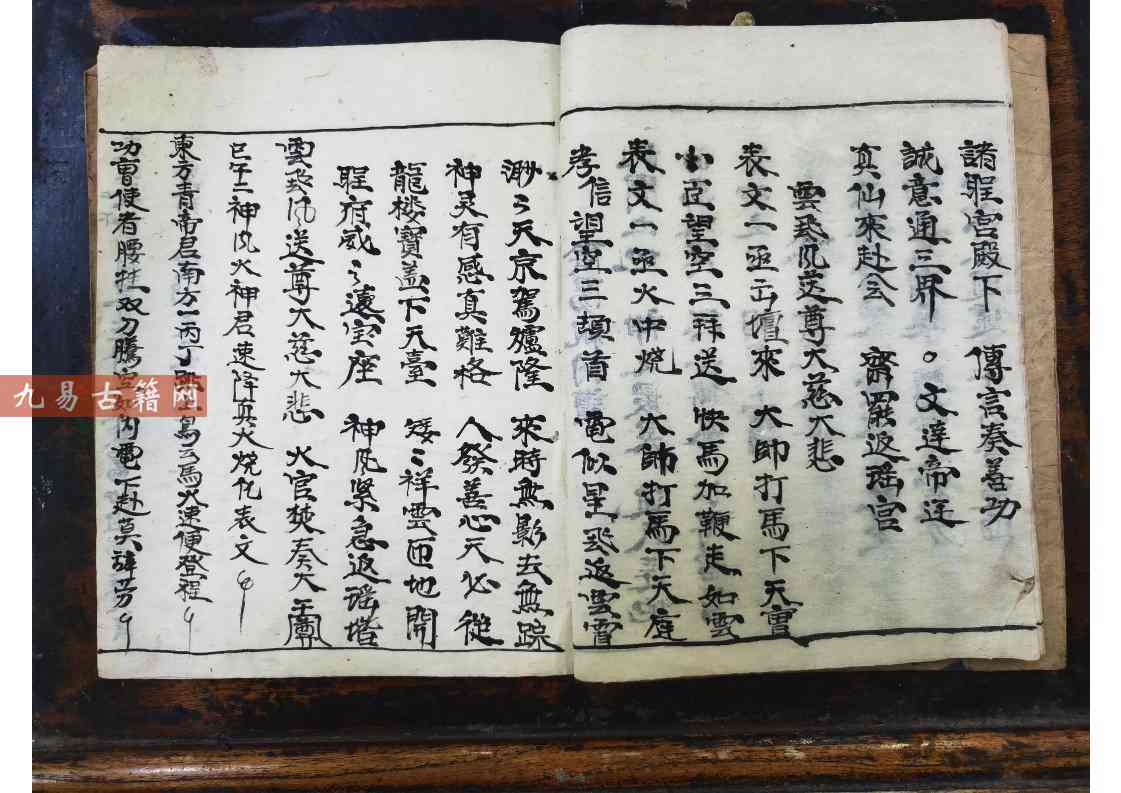 諸聖宮殿下 傳言奏善功
誠意通三界 。文達帝廷
真仙來赴会 齋罷返瑶宫
雲飛風送尊大慈大悲
表文一函出壇來 大師打馬下天曹
小臣望空三拜送 快馬加鞭走如雲
表文一函火中燒 大師打馬下天庭
孝信望空三頓首 電似星飛返雲霄
渺〻天京駕爐隆 來時無影去無踪
神灵有感真難格 人發善心天必從
龍楼寶盖下天臺 矮〻祥雲匝地開
聖府威〻遠宝座 神風緊急返瑶堦
雲飛風送尊大慈大悲 火官焚奏大
巳午二神风火神君速降真火燒化表文
東方青帝君南方一丙丁 馬火速便登程
功曹使者腰挂双刀騰 内電下赴莫辞劳
九易古籍网